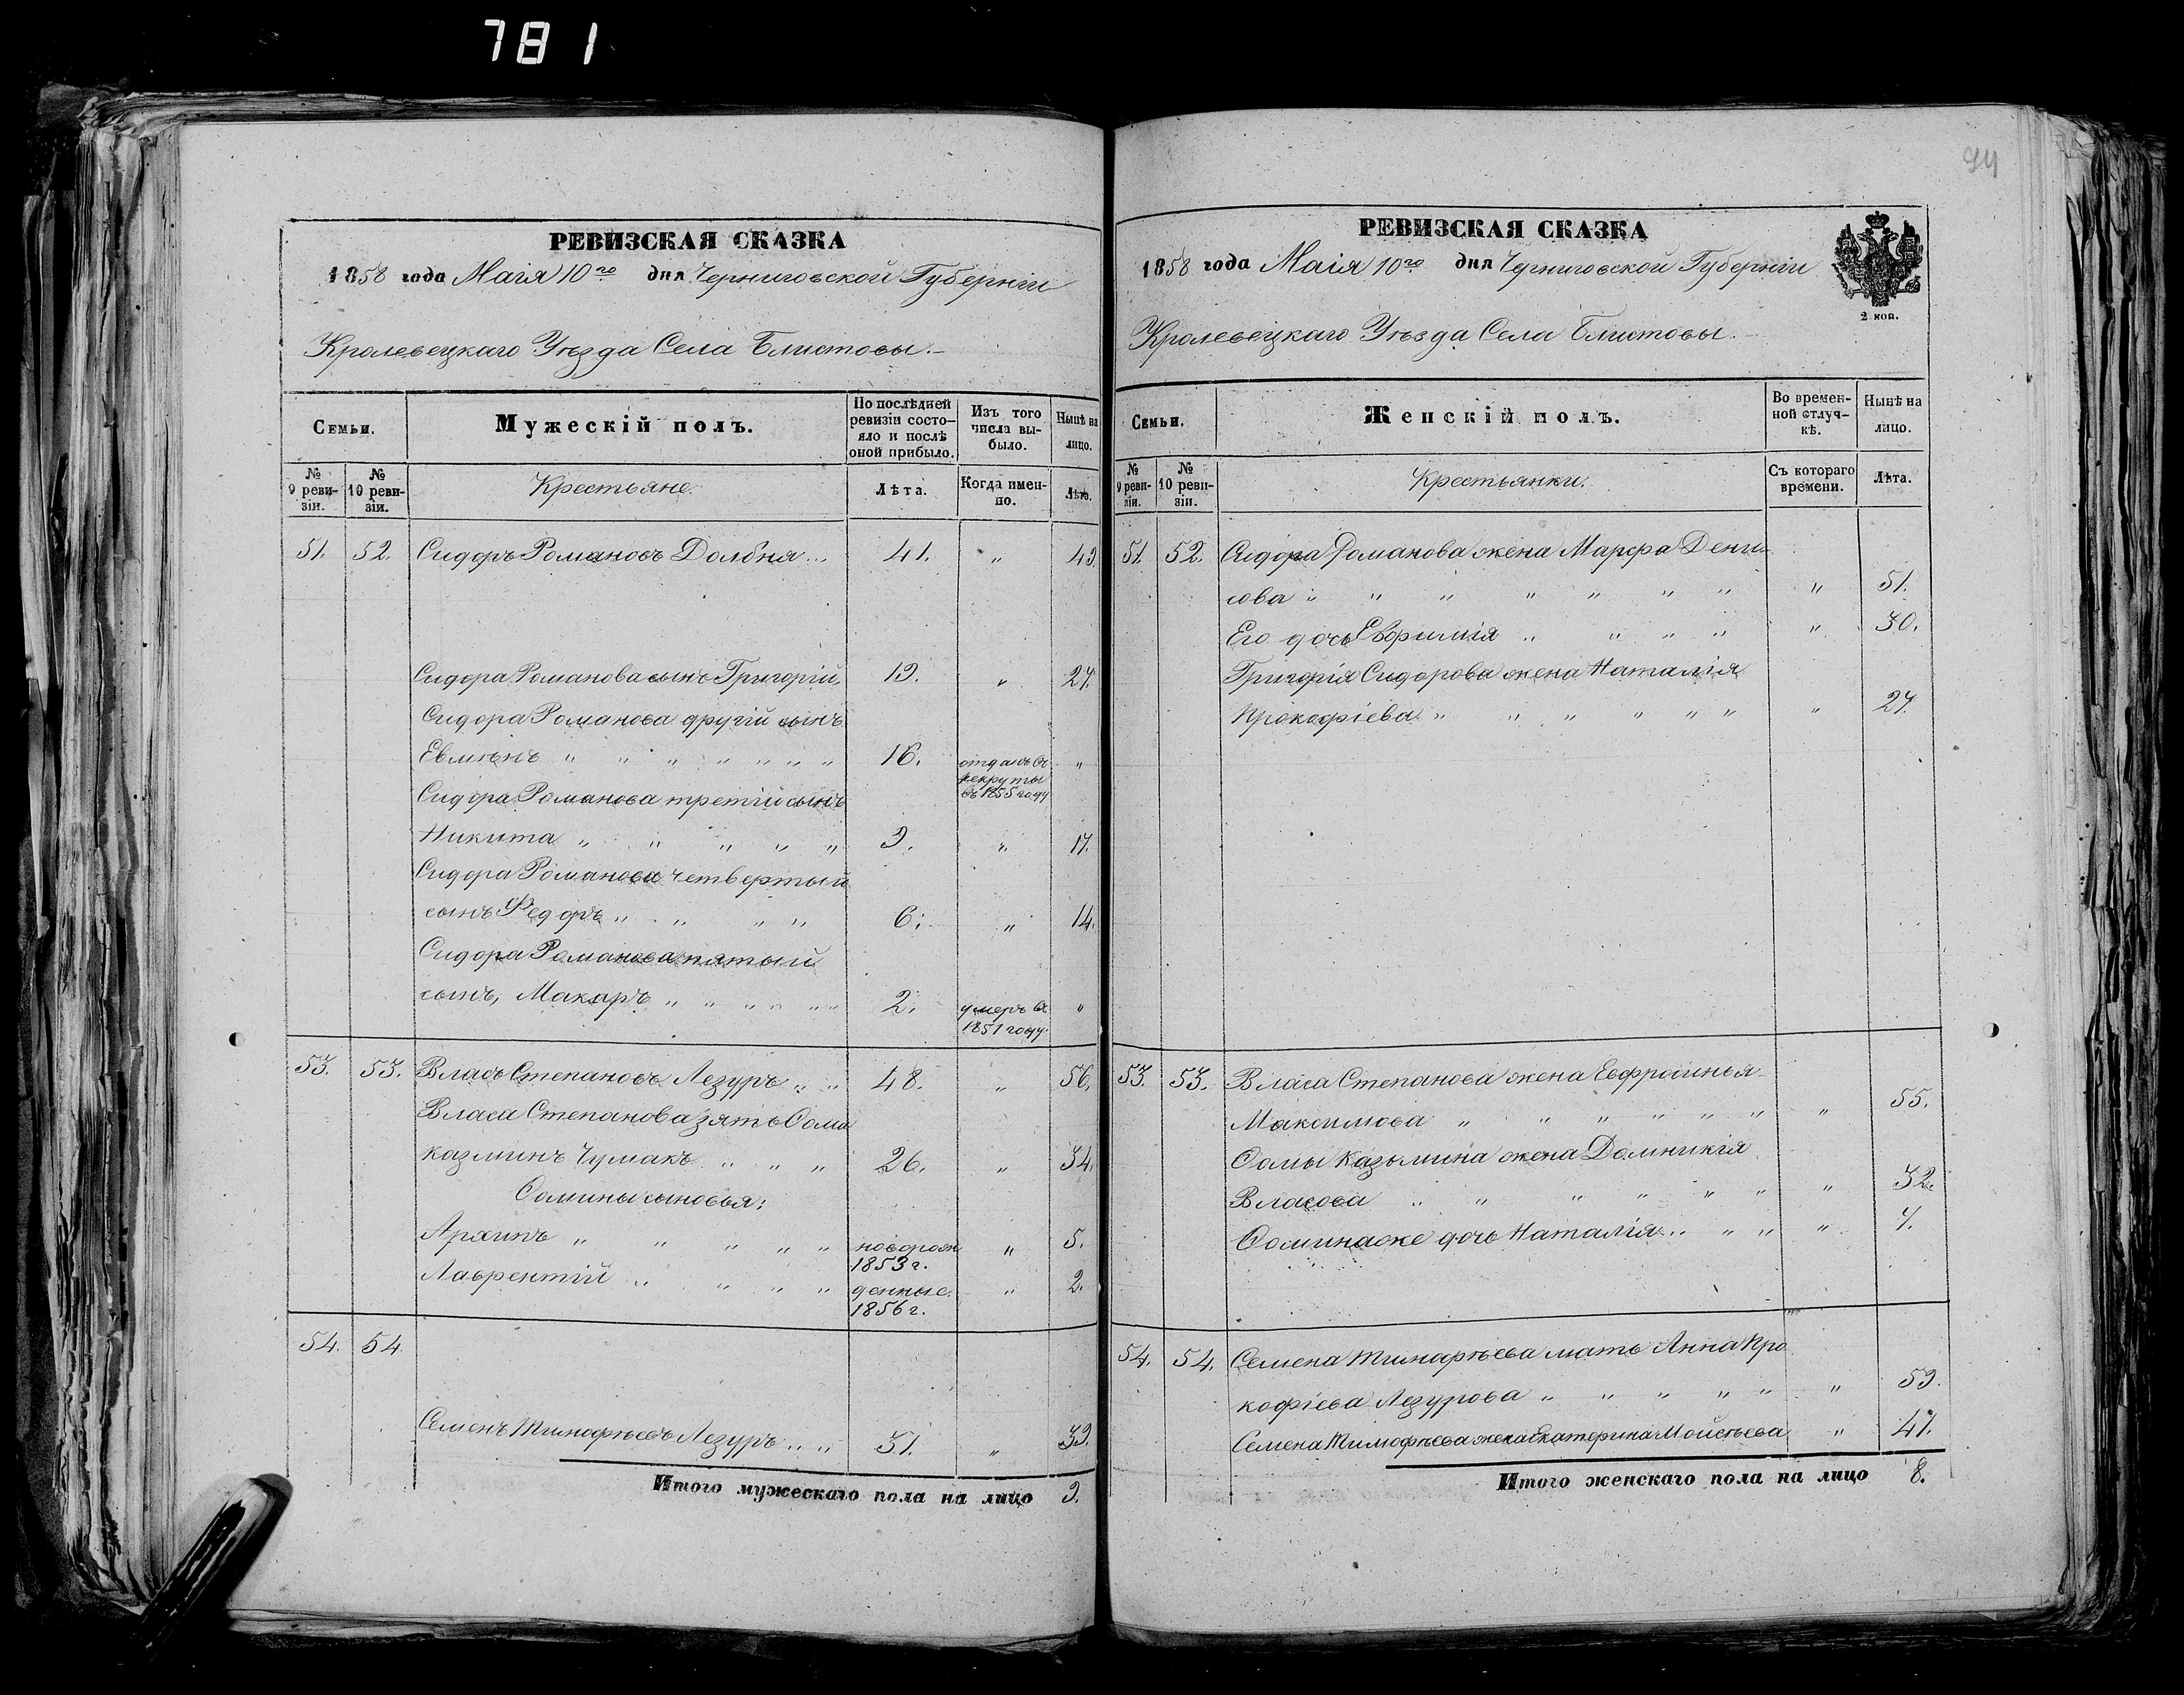 781
РЕВИЗСКАЯ СКАЗКА
1858 года Маія 10го дня Черниговской Губерніи
Кролевецкаго Уѣзда Села Блистовы.
Семьи. Мужескій полъ. По послѣдней ревизіи состояло и послѣ оной прибыло. Изъ того числа выбыло. Нынѣ на лицо.
№ 9 ревизіи. № 10 ревизіи. Крестьяне. Лѣта. Когда именно. Лѣта.
51. 52. Сидоръ Романовъ Долбня... 41. " 49.
Сидора Романова сынъ Григорій, 19. " 27.
Сидора Романова другій сынъ
Евмѣнъ " " " " " " " 16. отданъ въ рекруты въ 1855 году "
Сидора Романова третій сынъ
Никита " " " " " 9. " 17.
Сидора Романова четвертый
сынъ Федоръ " " " " 6. " 14.
Сидора Романова пятый
сынъ, Макаръ " " " " " " 2. умеръ въ 1851 году. "
53. 53. Власъ Степановъ Лезуръ " " 48. " 56.
Власа Степанова зять Ѳома
Казминъ Чумакъ " " " 26. " 34.
Ѳомины сыновья:
Архипъ " " " " " новорож 1853 г. " 5.
Лаврентій " " " " денные. 1856 г. " 2.
54. 54.
Семенъ Тимофѣевъ Лезуръ " " 31. " 39.
Итого мужескаго пола на лицо 9.
94
РЕВИЗСКАЯ СКАЗКА
1858 года Маія 10го дня Черниговской Губерніи
2 коп.
Кролевецкаго Уѣзда Села Блистовы.
Семьи. Женскій полъ. Во временной отлучкѣ. Нынѣ на лицо.
№ 9 ревизіи. № 10 ревизіи. Крестьянки. Съ котораго времени. Лѣта.
51. 52. Сидора Романова жена Марфа Дени
сова " " " " " " " " 51.
Его дочь Евфимія " " " " " 30.
Григорія Сидорова жена Наталія
Прокофіева " " " " " " " 27.
53. 53. Власа Степанова жена Евфросинья
Максимова " " " " " " " 55.
Ѳомы Казьмина жена Домникія
Власова " " " " " " " 32.
Ѳомина же дочь Наталія " " " " 7.
54. 54. Семена Тимофѣева мать Анна Про
кофіева Лезурова " " " " " " 59.
Семена Тимофѣева жена Екатерина Мойсѣева " 47.
Итого женскаго пола на лицо 8.